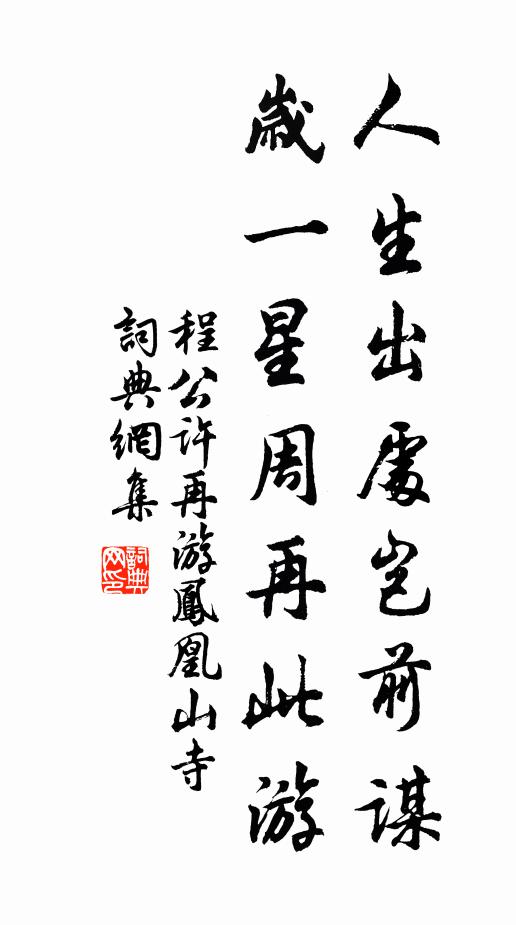 人生出處豈前謀
歲一星周再此游
程公許再游鳳凰山寺
詞典網集
詞典網印